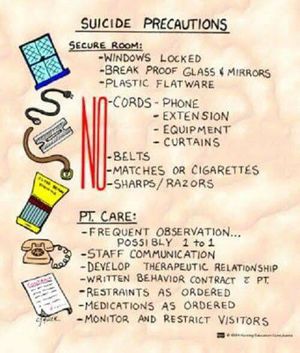 SUICIDE PRECAUTIONS
SECURE ROOM:
-WINDOWS LOCKED
-BREAK PROOF GLASS & MIRRORS
-PLASTIC FLATWARE
NO
-CORDS - PHONE
- EXTENSION
- EQUIPMENT
- CURTAINS
-BELTS
-MATCHES OR CIGARETTES
-SHARPS/RAZORS
PT. CARE:
-FREQUENT OBSERVATION...
POSSIBLY 1 to 1
-STAFF COMMUNICATION
-DEVELOP THERAPEUTIC RELATIONSHIP
-WRITTEN BEHAVIOR CONTRACT c̄ PT.
-RESTRAINTS AS ORDERED
-MEDICATIONS AS ORDERED
-MONITOR AND RESTRICT VISITORS